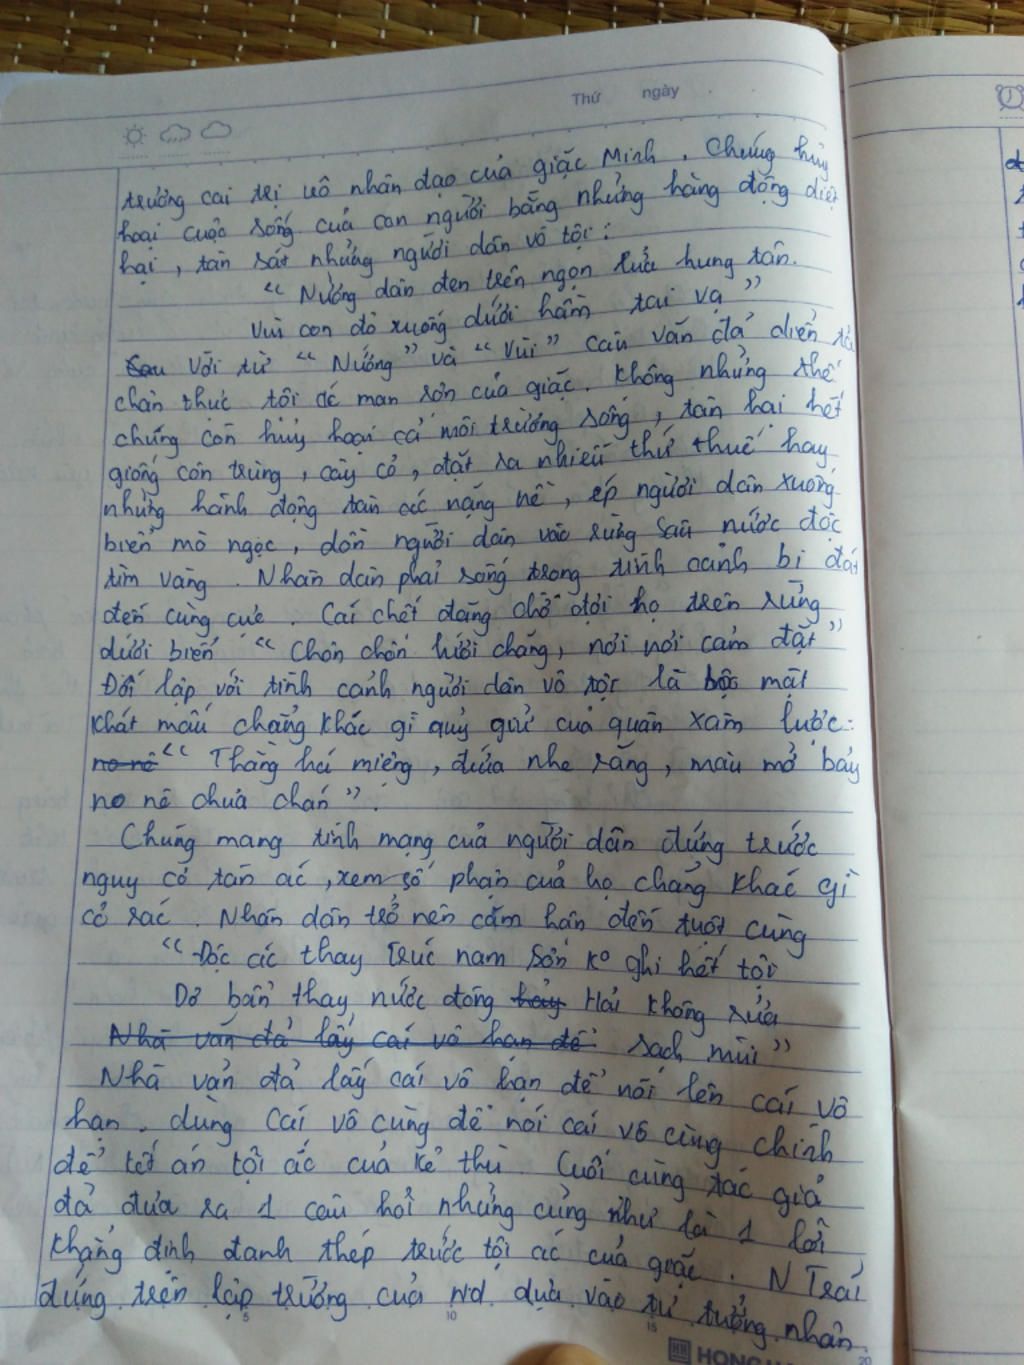 Thứ ngày
trương cai trị vô nhân đạo của giặc Minh. Chúng hủy
hoại cuộc sống của con người bằng những hàng động diệt
hại, tàn sát những người dân vô tội:
“ Nướng dân đen trên ngọn lửa hung tàn.
Vùi con đỏ xuống dưới hầm tai vạ ”
Với từ “ Nướng ” và “ Vùi ” câu văn đã diển tả
chân thực tội ác man rợn của giặc. Không những thế
chúng còn huỷ hoại cả môi trường sống, tàn hại hết
giống côn trùng, cây cỏ, đặt ra nhiều thứ thuế hay
những hành động tàn ác nặng nề, ép người dân xuống
biển mò ngọc, dồn người dân vào rừng sâu nước độc
tìm vàng. Nhân dân phải sống trong tình cảnh bi đát
đến cùng cực. Cái chết đang chờ đợi họ trên rừng
dưới biển “ Chốn chốn lưới chăng, nơi nơi cạm đặt ”
Đối lập với tình cảnh người dân vô tội là bộ mặt
khát máu chẳng khác gì quỷ giử của quân xâm lược:
“ Thằng há miệng, đứa nhe răng, máu mở bấy
no nê chưa chán ”.
Chúng mang tính mạng của người dân đứng trước
nguy cơ tàn ác, xem số phận của họ chẳng khác gì
cỏ rác. Nhân dân trở nên căm hận đến tuột cùng
“ Độc ác thay trúc nam Sơn ko ghi hết tội
Dơ bẩn thay nước đông Hải không rửa
sạch mùi ”
Nhà văn đả lấy cái vô hạn để nói lên cái vô
hạn. dùng cái vô cùng để nói cái vô cùng chính
để tố án tội ác của kẻ thù. Cuối cùng tác giả
đả đưa ra 1 câu hỏi nhưng cũng như là 1 lời
khẳng định đanh thép trước tội ác của giặc. N Trãi
đứng trên lập trường của nd dựa vào tư tưởng nhân
5 10 15 20